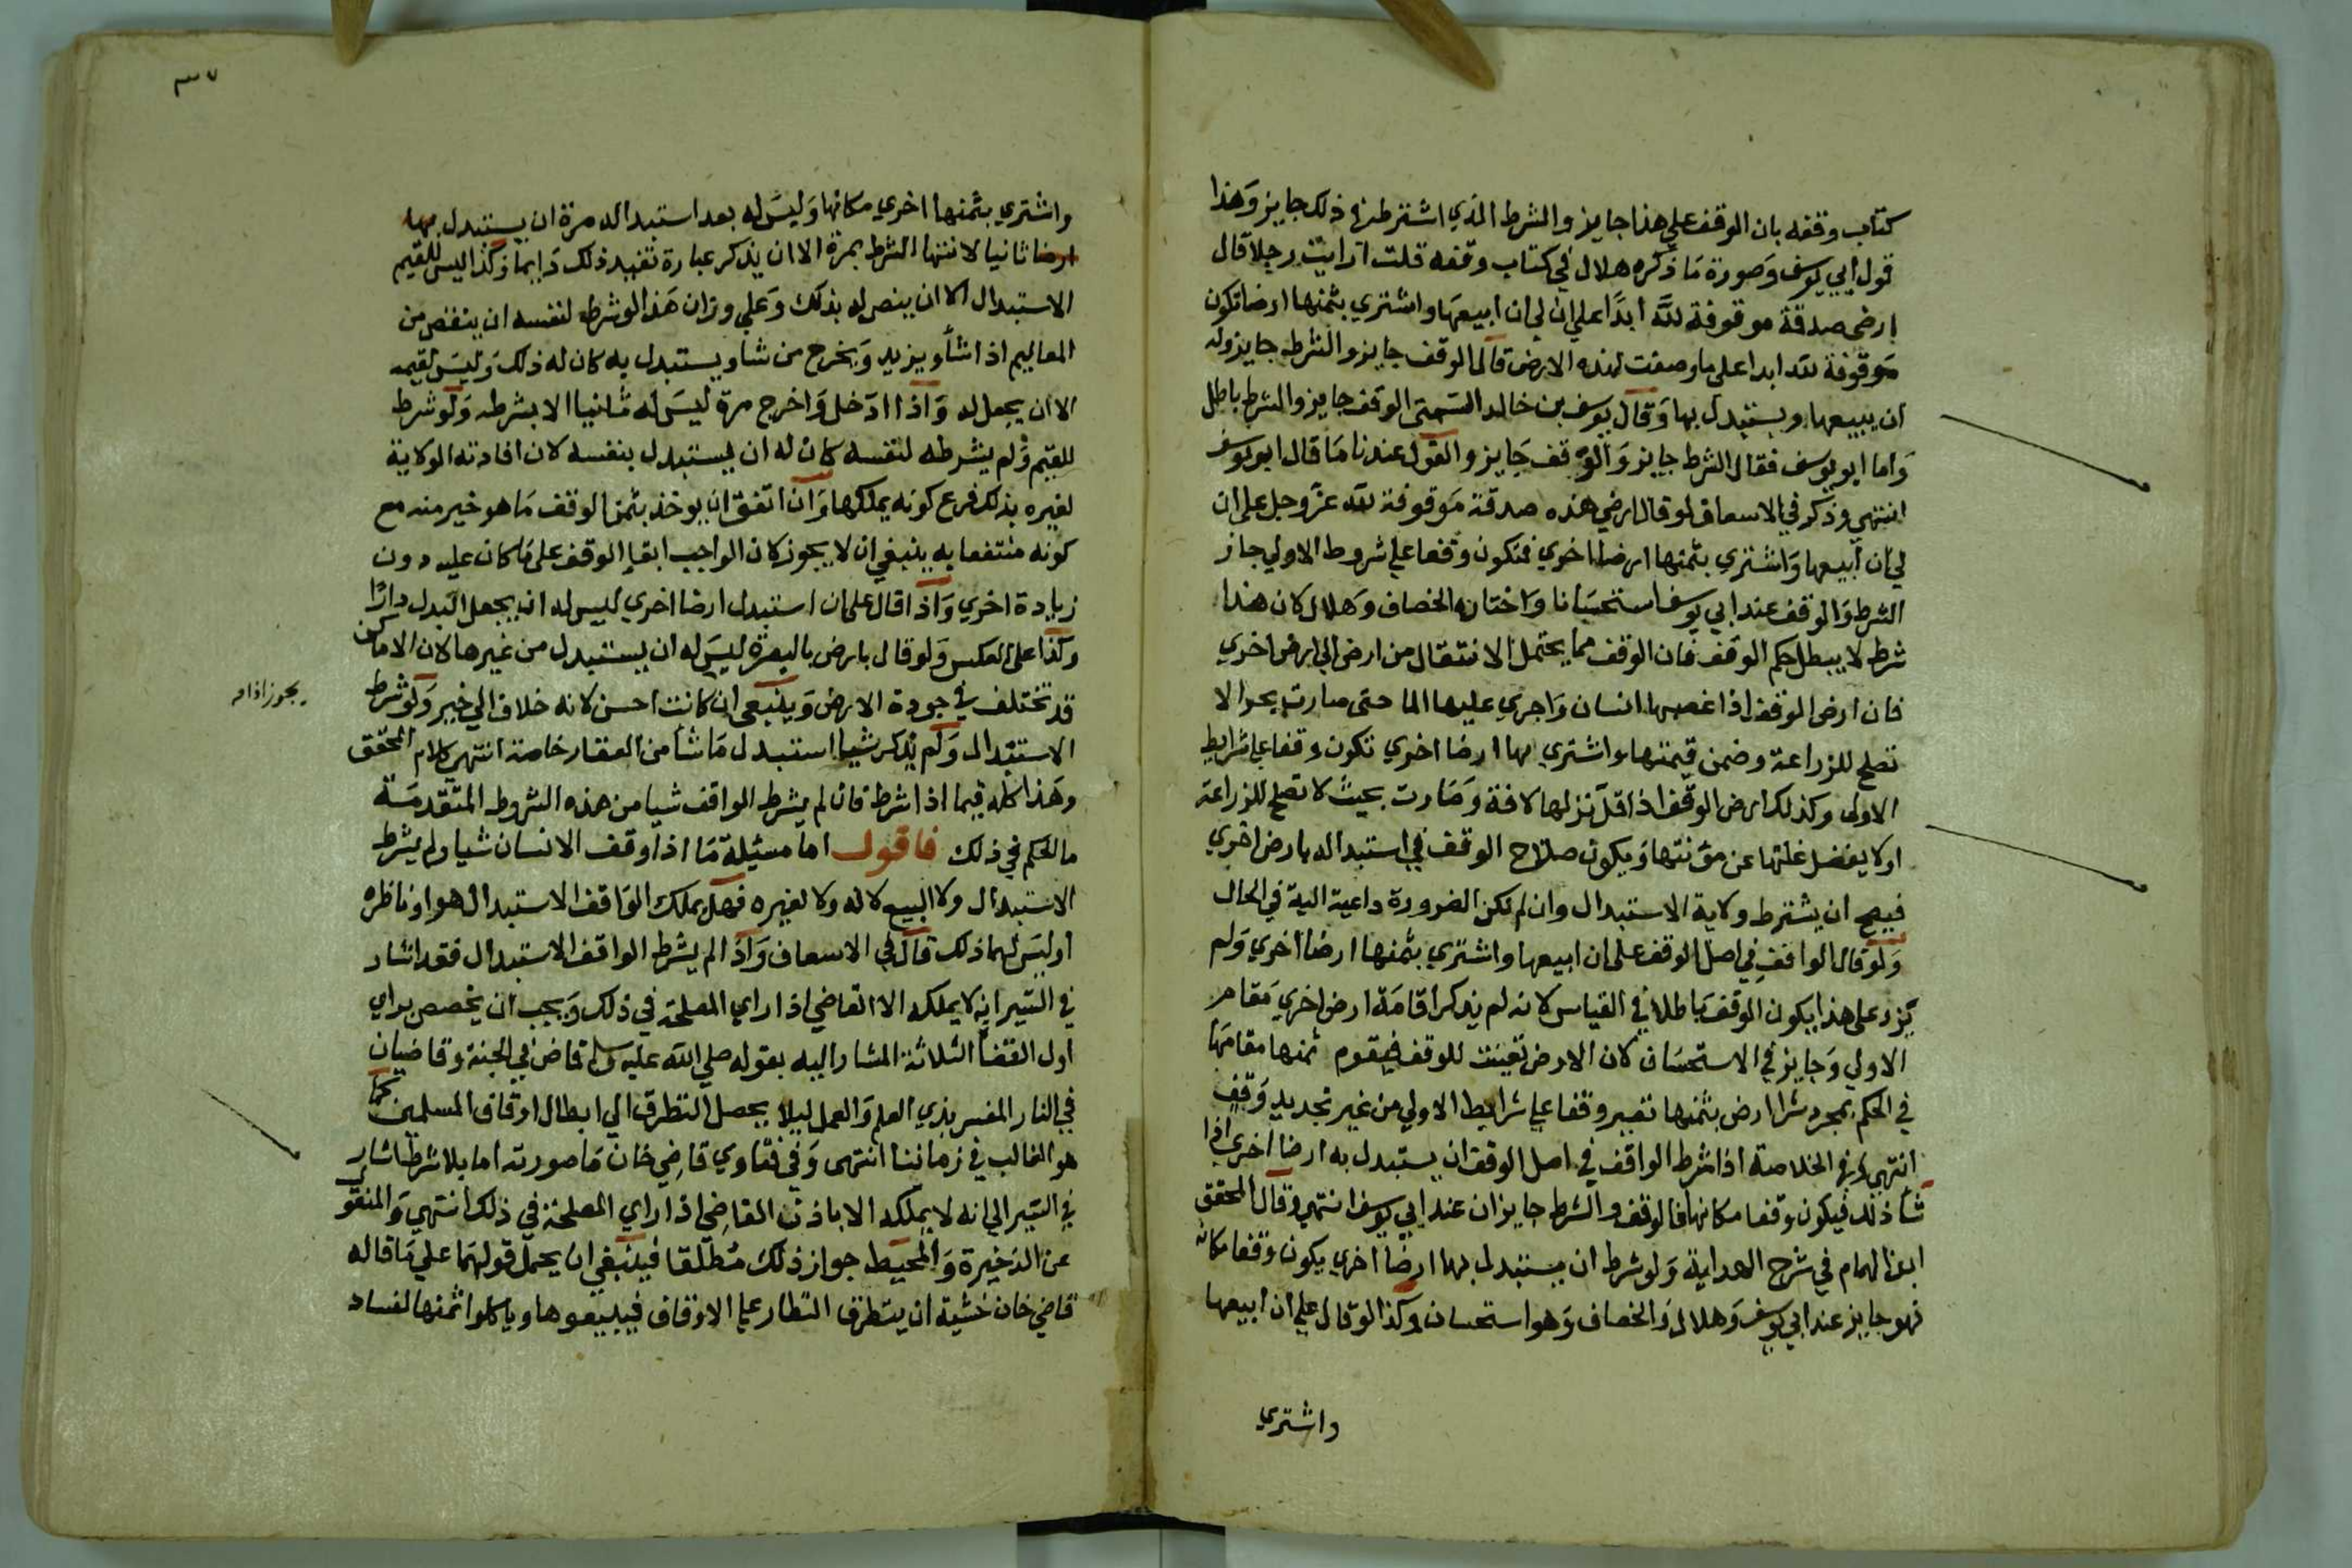 كتاب وقفه بان الوقف علي هذا جايز والشرط الذي اشترطه في ذلك جايز وَهذا
قول ابي يوسف وَصورة مَا ذكره هلال في كتاب وقفه قلت ارايت رجلا قال
ارضي صدقة موقوفة لله ابدًا علي ان لي ان ابيعهَا واشتري بثمنها ارضا تكون
مَوقوفة لله ابدا علي ما وصفت لهذه الارض قال الوقف جايز والشرط جايز وله
ان يبيعها ويستبدل بها وَقال يوسف بن خالد السمتي الوقف جايز والشرط باطل
وَاما ابو يوسف فقال الشرط جايز وَالوقف جَايز والقول عندنا مَا قال ابو يوسف
انتهي وذكر في الاسعاف لو قال ارضي هذه صدقة مَوقوفة لله عزّ وجل علي ان
لي ان ابيعها وَاشتري بثمنها ارضا اخري فتكون وقفا علي شروط الاولي جاز
الشرط وَالوقف عند ابي يوسف استحسَانا وَاختاره الخصاف وَهلال لان هذا
شرط لا يبطل حكم الوقف فان الوقف مما يحتمل الانتقال من ارض الي ارض اخري
فان ارض الوقف اذا غصبها انسان وَاجري عليها الما حتي صارت بحرا لا
تصلح للزراعة وضمن قيمتها واشتري بها ارضا اخري تكون وقفا علي شرايط
الاولي وكذلك ارض الوقف اذا قل نزلها لافة وَصَارت بحيث لا تصلح للزراعة
او لا يفضل غلتها عن مؤنتها وَيكون صلاح الوقف في استبداله بارض اخري
فيصح ان يشترط ولاية الاستبدال وان لم تكن الضرورة داعية اليه في الحال
وَلو قال الواقف في اصل الوقف علي ان ابيعها واشتري بثمنها ارضا اخري وَلم
يزد علي هذا يكون الوقف باطلا في القياس لانه لم يذكر اقامَة ارض اخري مَقام
الاولي وَجايز في الاستحسَان لان الارض تعينت للوقف فيقوم ثمنها مقامَها
في الحكم بمجرد شرا ارض بثمنها تصير وقفا علي شرايط الاولي من غير تجديد وَقف
انتهي وفي الخلاصة اذا شرط الواقف في اصل الوقف ان يستبدل به ارضا اخري اذا
شأ ذلك فيكون وقفا مكانها فالوقف والشرط جايزان عند ابي يوسف انتهي وقال المحقق
ابن الهمام في شرح الهداية وَلو شرط ان يستبدل بها ارضا اخري يكون وقفا مكانه
فهو جايز عند ابي يوسف وَهلال وَالخصاف وَهو استحسان وكذا لو قال علي ان ابيعها
واشتري
٣٧
واشتري بثمنها اخري مكانها وَليسَ له بعد استبداله مرة ان يستبدل بها
ارضا ثانيا لانتها الشرط بمرة الا ان يذكر عبارة تفيد ذلك دَايما وَكذا ليس للقيم
الاستبدال الا ان ينص له بذلك وَعلي وزان هَذا لو شرط لنفسه ان ينقص من
المعاليم اذا شأ ويزيد وَيخرج من شا ويستبدل به كان له ذلك وَليسَ لقيمه
الا ان يجعل له وَاذا ادَخل وَاخرج مرة ليسَ له ثانيا الا بشرطه وَلو شرط
للقيم ولم يشرطه لنفسه كان له ان يستبدل بنفسه لان افادته الولاية
لغيره بذلك فرع كونه يملكها وَان اتفق ان يوخذ بثمن الوقف مَا هو خير منه مع
كونه منتفعا به ينبغي ان لا يجوز لان الواجب ابقا الوقف علي ما كان عليه دون
زيادة اخري وَاذا قال علي ان استبدل ارضا اخري ليس له ان يجعل البدل دارًا
وكذا علي العكس وَلو قال بارض بالبصرة ليسَ له ان يستبدل من غيرها لان الاماكن
قد تختلف في جودة الارض وَينبغي ان كانت احسن لانه خلاف الي خير وَلو شرط
يجوز اذا
الاستبدال وَلم يذكر شيا استبدل مَا شأ من العقار خاصة انتهي كلام المحقق
وهَذا كله فيما اذا شرط فان لم يشرط الواقف شيا من هذه الشروط المتقدمَة
ما الحكم في ذلك فاقول اما مسئيلة مَا اذا وقف الانسان شيا ولم يشرط
الاستبدال ولا البيع لا له ولا لغيره فهل يملك الوَاقف الاستبدال هو او ناظره
او ليسَ لهما ذلك قال في الاسعاف وَاذا لم يشرط الواقف الاستبدال فقد اشار
في السّير انه لا يملكه الا القاضي اذا راي المصلحة في ذلك وَيجب ان يخصص براي
اول القضأ الثلاثة المشار اليه بقوله صلي الله عليه وسلم قاض في الجنة وقاضيان
في النار المفسر بذي العلم وَالعمل ليلا يحصل التطرق الي ابطال اوقاف المسلمين كما
هو الغالب في زماننا انتهي وَفي فتاوي قاضي خان مَا صورته اما بلا شرط اشار
في السّير الي انه لا يملكه الا باذن القاضي اذا راي المصلحة في ذلك انتهي وَالمنقول
عن الذخيرة وَالمحيط جواز ذلك مُطلقا فينبغي ان يحمل قولهمَا علي مَا قاله
قاضي خان خشية ان يتطرق النظار علي الاوقاف فيبيعوها وياكلوا اثمنها لفساد